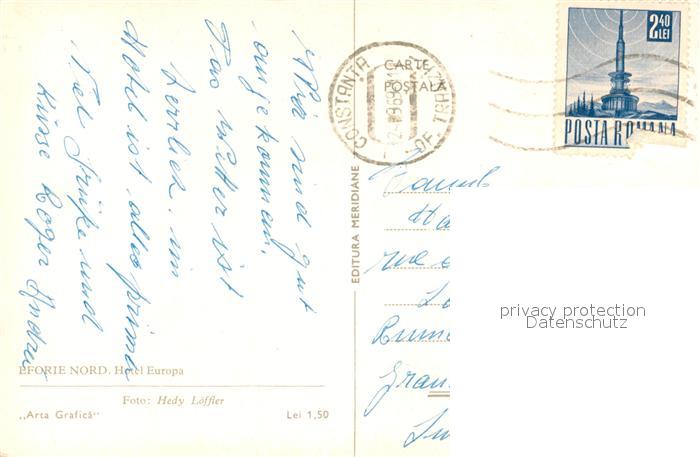 Wir sind gut
angekommen.
Das Wetter ist
herrlich. im
Hotel ist alles prima
Viel Grüsse und
Küsse Roger Andrea
EFORIE NORD. Hotel Europa
Foto: Hedy Löffler
„Arta Grafică“
Lei 1,50
EDITURA MERIDIANE
CARTE
POȘTALĂ
CONSTANȚA
OF. TR
2,40
LEI
POSTA ROMANA
rue
privacy protection
Datenschutz